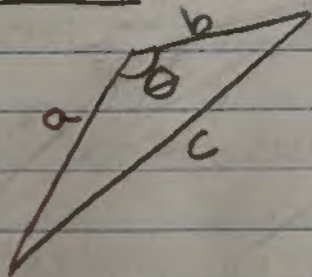 b
θ
a
c